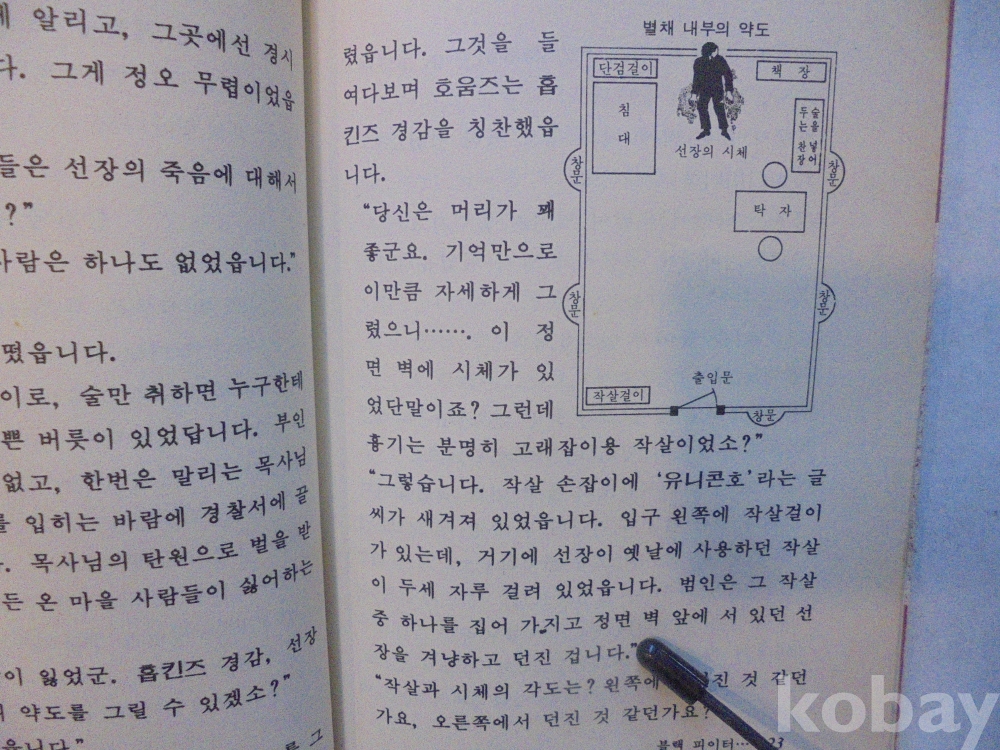 게 알리고, 그곳에선 경시
다. 그게 정오 무렵이었읍
들은 선장의 죽음에 대해서
?”
사람은 하나도 없었읍니다.”
떴읍니다.
이로, 술만 취하면 누구한테
쁜 버릇이 있었답니다. 부인
없고, 한번은 말리는 목사님
를 입히는 바람에 경찰서에 끌
. 목사님의 탄원으로 벌을 받
든 온 마을 사람들이 싫어하는
이 잃었군. 홉킨즈 경감, 선장
약도를 그릴 수 있겠소?”
읍니다.”
를 그
렸읍니다. 그것을 들
여다보며 호움즈는 홉
킨즈 경감을 칭찬했읍
니다.
“당신은 머리가 꽤
좋군요. 기억만으로
이만큼 자세하게 그
렸으니……. 이 정
면 벽에 시체가 있
었단말이죠? 그런데
흉기는 분명히 고래잡이용 작살이었소?”
“그렇습니다. 작살 손잡이에 ‘유니콘호’라는 글
씨가 새겨져 있었읍니다. 입구 왼쪽에 작살걸이
가 있는데, 거기에 선장이 옛날에 사용하던 작살
이 두세 자루 걸려 있었읍니다. 범인은 그 작살
중 하나를 집어 가지고 정면 벽 앞에 서 있던 선
장을 겨냥하고 던진 겁니다.”
“작살과 시체의 각도는? 왼쪽에 던진 것 같던
가요, 오른쪽에서 던진 것 같던가요?
블랙 피이터… 23
별채 내부의 약도
단검걸이
책 장
침대
선장의 시체
술을 넣어
두는 찬장
창문
창문
탁 자
창문
창문
작살걸이
출입문
창문
kobay